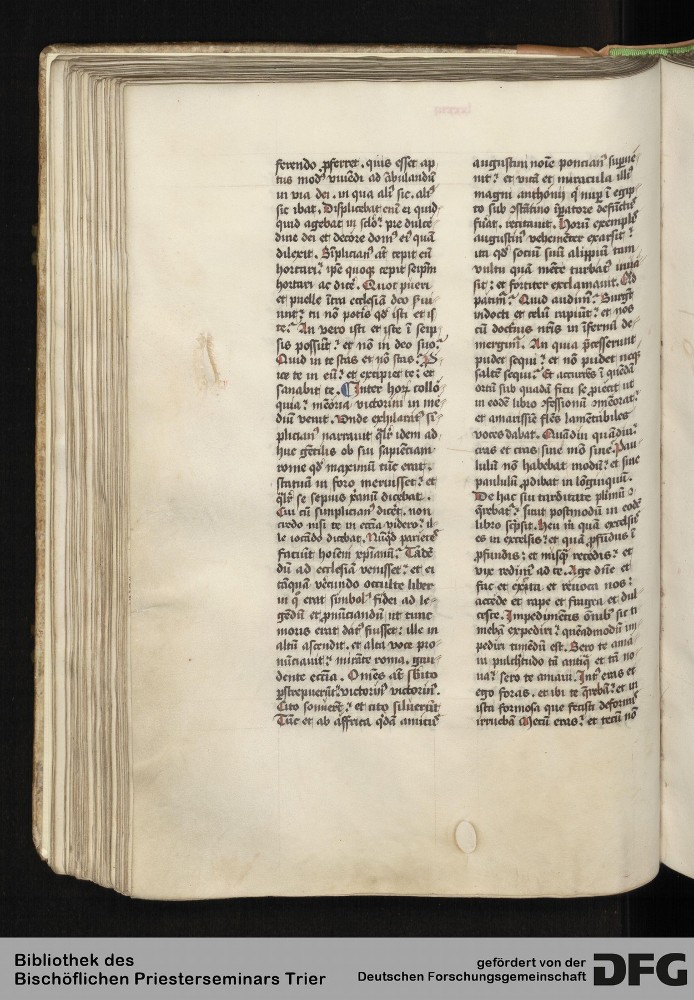 ferendo ꝓferret. quis esset ap
tus modꝰ viuēdi ad ābulandū
in via dei. in qua aliꝰ sic. aliꝰ
sic ibat. Displicebat eni ei quid
quid agebat in sclo? pre dulce
dine dei et decore domꝰ eiꝰ quā
dilexit. Simplicianꝰ aūt cepit eū
hortari? ipse quoqꝫ cepit seipm̄
hortari ac dicē. Quot pueri
et puelle ītra ecclesiā deo ẜuiu
unt? tu nō potis qd isti et is
te? An vero isti et iste ī seip
sis possūt? et nō in deo suo?
Quid in te stas et nō stas? P
ice te in eū? et excipiet te? et
sanabit te. Inter hec collo
quia? memoria victorini in me
diū venit. Unde exhilaratꝰ si
plicianꝰ narrauit qlꝛ idem ad
huc gētilis ob sui sapientiam
rome qd maximū tūc erat.
statuā in foro meruisset? et
qlꝛ se sepius xp̄anū dicebat.
Cui cū simplicianꝰ dicēt. non
credo nisi te in ecclīa videro? il
le iocādo dicebat. Nūqd parietes
faciūt hoīem xp̄ianū? Tādē
dū ad ecclesiā venisset? et ei
tāquā verecundo occulte liber
in qͦ erat simbolꝰ fidei ad le
gēdū et ꝓnūciandū ut tunc
moris erat datꝰ fuisset? ille in
altū ascendit. et alta voce pro
nūciauit? mirāte roma. gau
dente ecclīa. Omēs aūt sbito
ꝑstrepuerūt? victorinꝰ victorinꝰ.
Cito sonuerūt? et cito siluerūt
Tūc et ab affrica qdā amicus
augustini noīe poncianꝰ suꝑue
nit? et vitā et miracula illiꝰ
magni anthonij qͥ nuꝑ ī egip
to sub ꝯstātino īꝑatore defunctꝰ
fuāt. recitauit. Horū exemplis
augustinꝰ vehemēter exarsit?
ita qd sociū suū alippiū tam
vultu quā mēte turbatꝰ inua
sit? et fortiter exclamauit. Qd
patim? Quid audim? Surgūt
indocti et celū rapiūt? et nos
cū doctinis nr̄is in īfernū de
mergim. An quia p̄cesserunt
pudet sequi? et nō pudet neqꝫ
saltē sequi? Et accurēs ī quēdā
ortū sub quadā ficu se piecit ut
in eodē libro ꝯfessionū ꝯmeorat?
et amarissīe flēs lamētabiles
voces dabat. Quādiu quādiu?
cras et cras sine mō sine? Pau
lulū nō habebat modū? et sine
paululū ꝓdibat in lōginquū.
De hac sui tarditate plimū
qrebat? sicut postmodū in eodē
libro scp̄sit. Heu m̄ quā excelsus
es in excelsis? et quā ꝓfūdus ī
ꝓfundis? et nusqꝫ recedis? et
vix redim ad te. Age dn̄e et
fac et excita et reuoca nos?
accede et rape et fragra et dul
cesce. Impedimētis oībꝰ sic ti
mebā expediri? quēadmodū im
pediri timēdū est. Sero te ama
ui pulchtudo tā antiq et tā no
ua? sero te amaui. Intꝰ eras et
ego foras. et ibi te qrebā? et in
ista formosa que fecisti deformis
irruebā Mecū eras? et tecū nō
Bibliothek des
Bischöflichen Priesterseminars Trier
gefördert von der
Deutschen Forschungsgemeinschaft
DFG